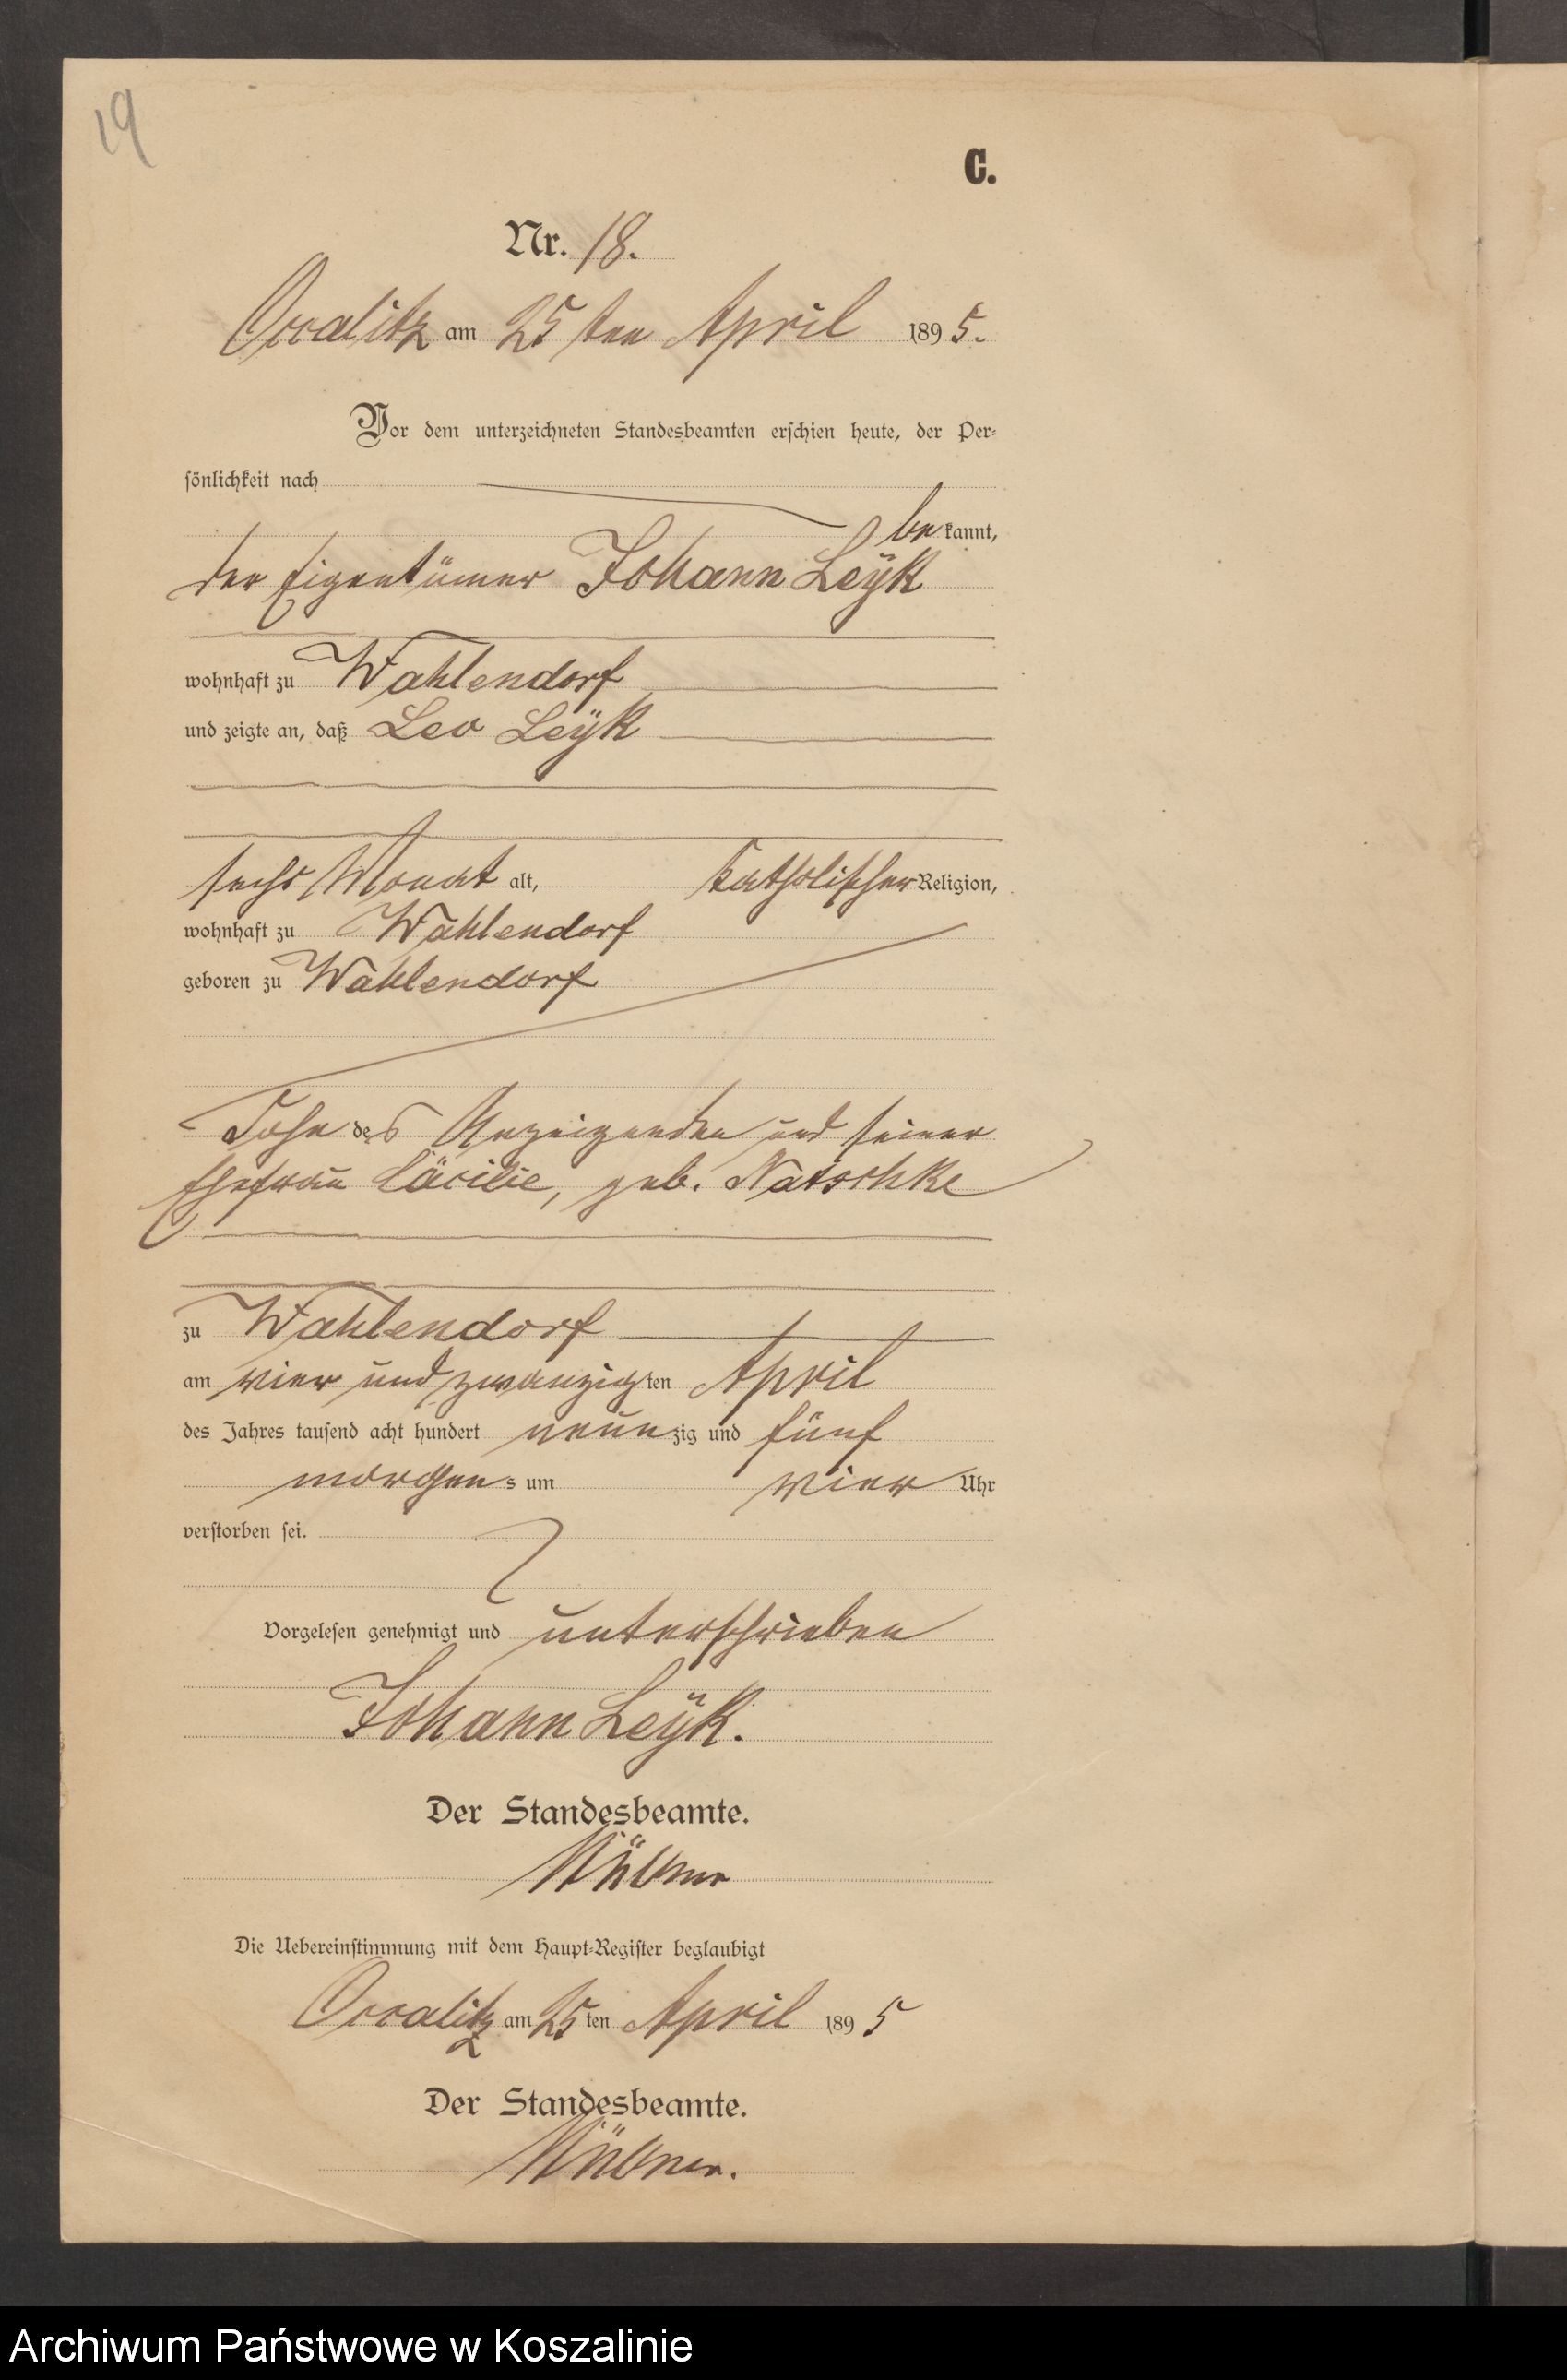 19
C.
Nr. 18.
Occalitz am 25 ten April 1895.
Vor dem unterzeichneten Standesbeamten erschien heute, der Per-
sönlichkeit nach
bekannt,
der Eigentümer Johann Leÿk
wohnhaft zu Wahlendorf
und zeigte an, daß Leo Leÿk
sechs Monat alt, katholischer Religion,
wohnhaft zu Wahlendorf
geboren zu Wahlendorf
Sohn des Anzeigenden und seiner
Ehefrau Cäcilie, geb. Natschke
zu Wahlendorf
am vier und zwanzigten April
des Jahres tausend acht hundert neunzig und fünf
morgens um vier Uhr
verstorben sei.
Vorgelesen genehmigt und unterschrieben
Johann Leÿk.
Der Standesbeamte.
Die Uebereinstimmung mit dem Haupt-Register beglaubigt
Occalitz am 25 ten April 1895
Der Standesbeamte.
Archiwum Państwowe w Koszalinie